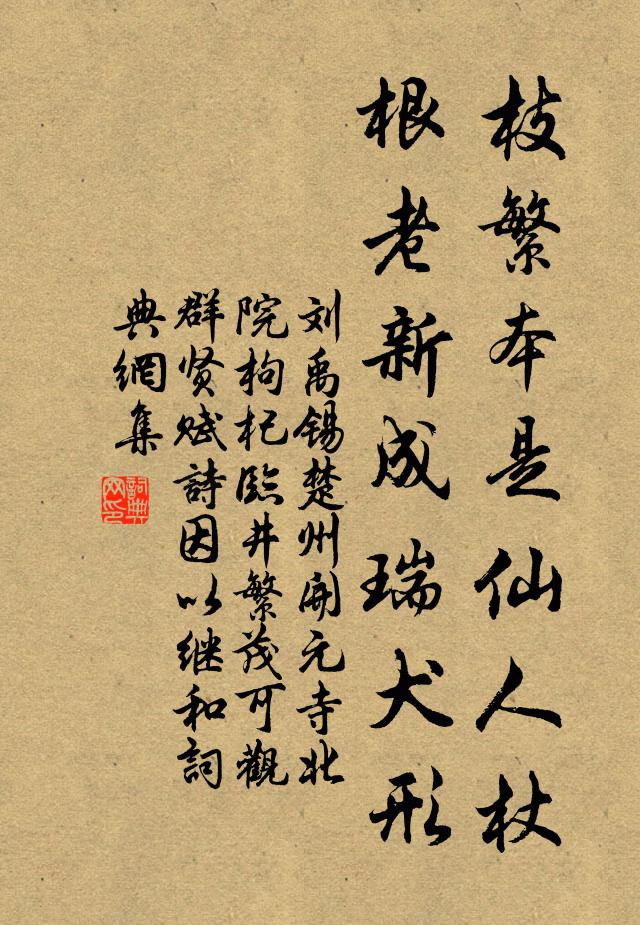 枝繁本是仙人杖
根老新成瑞犬形
刘禹锡楚州開元寺北
院枸杞臨井繁茂可觀
群贤赋詩因以继和詞
典網集
詞典
网印